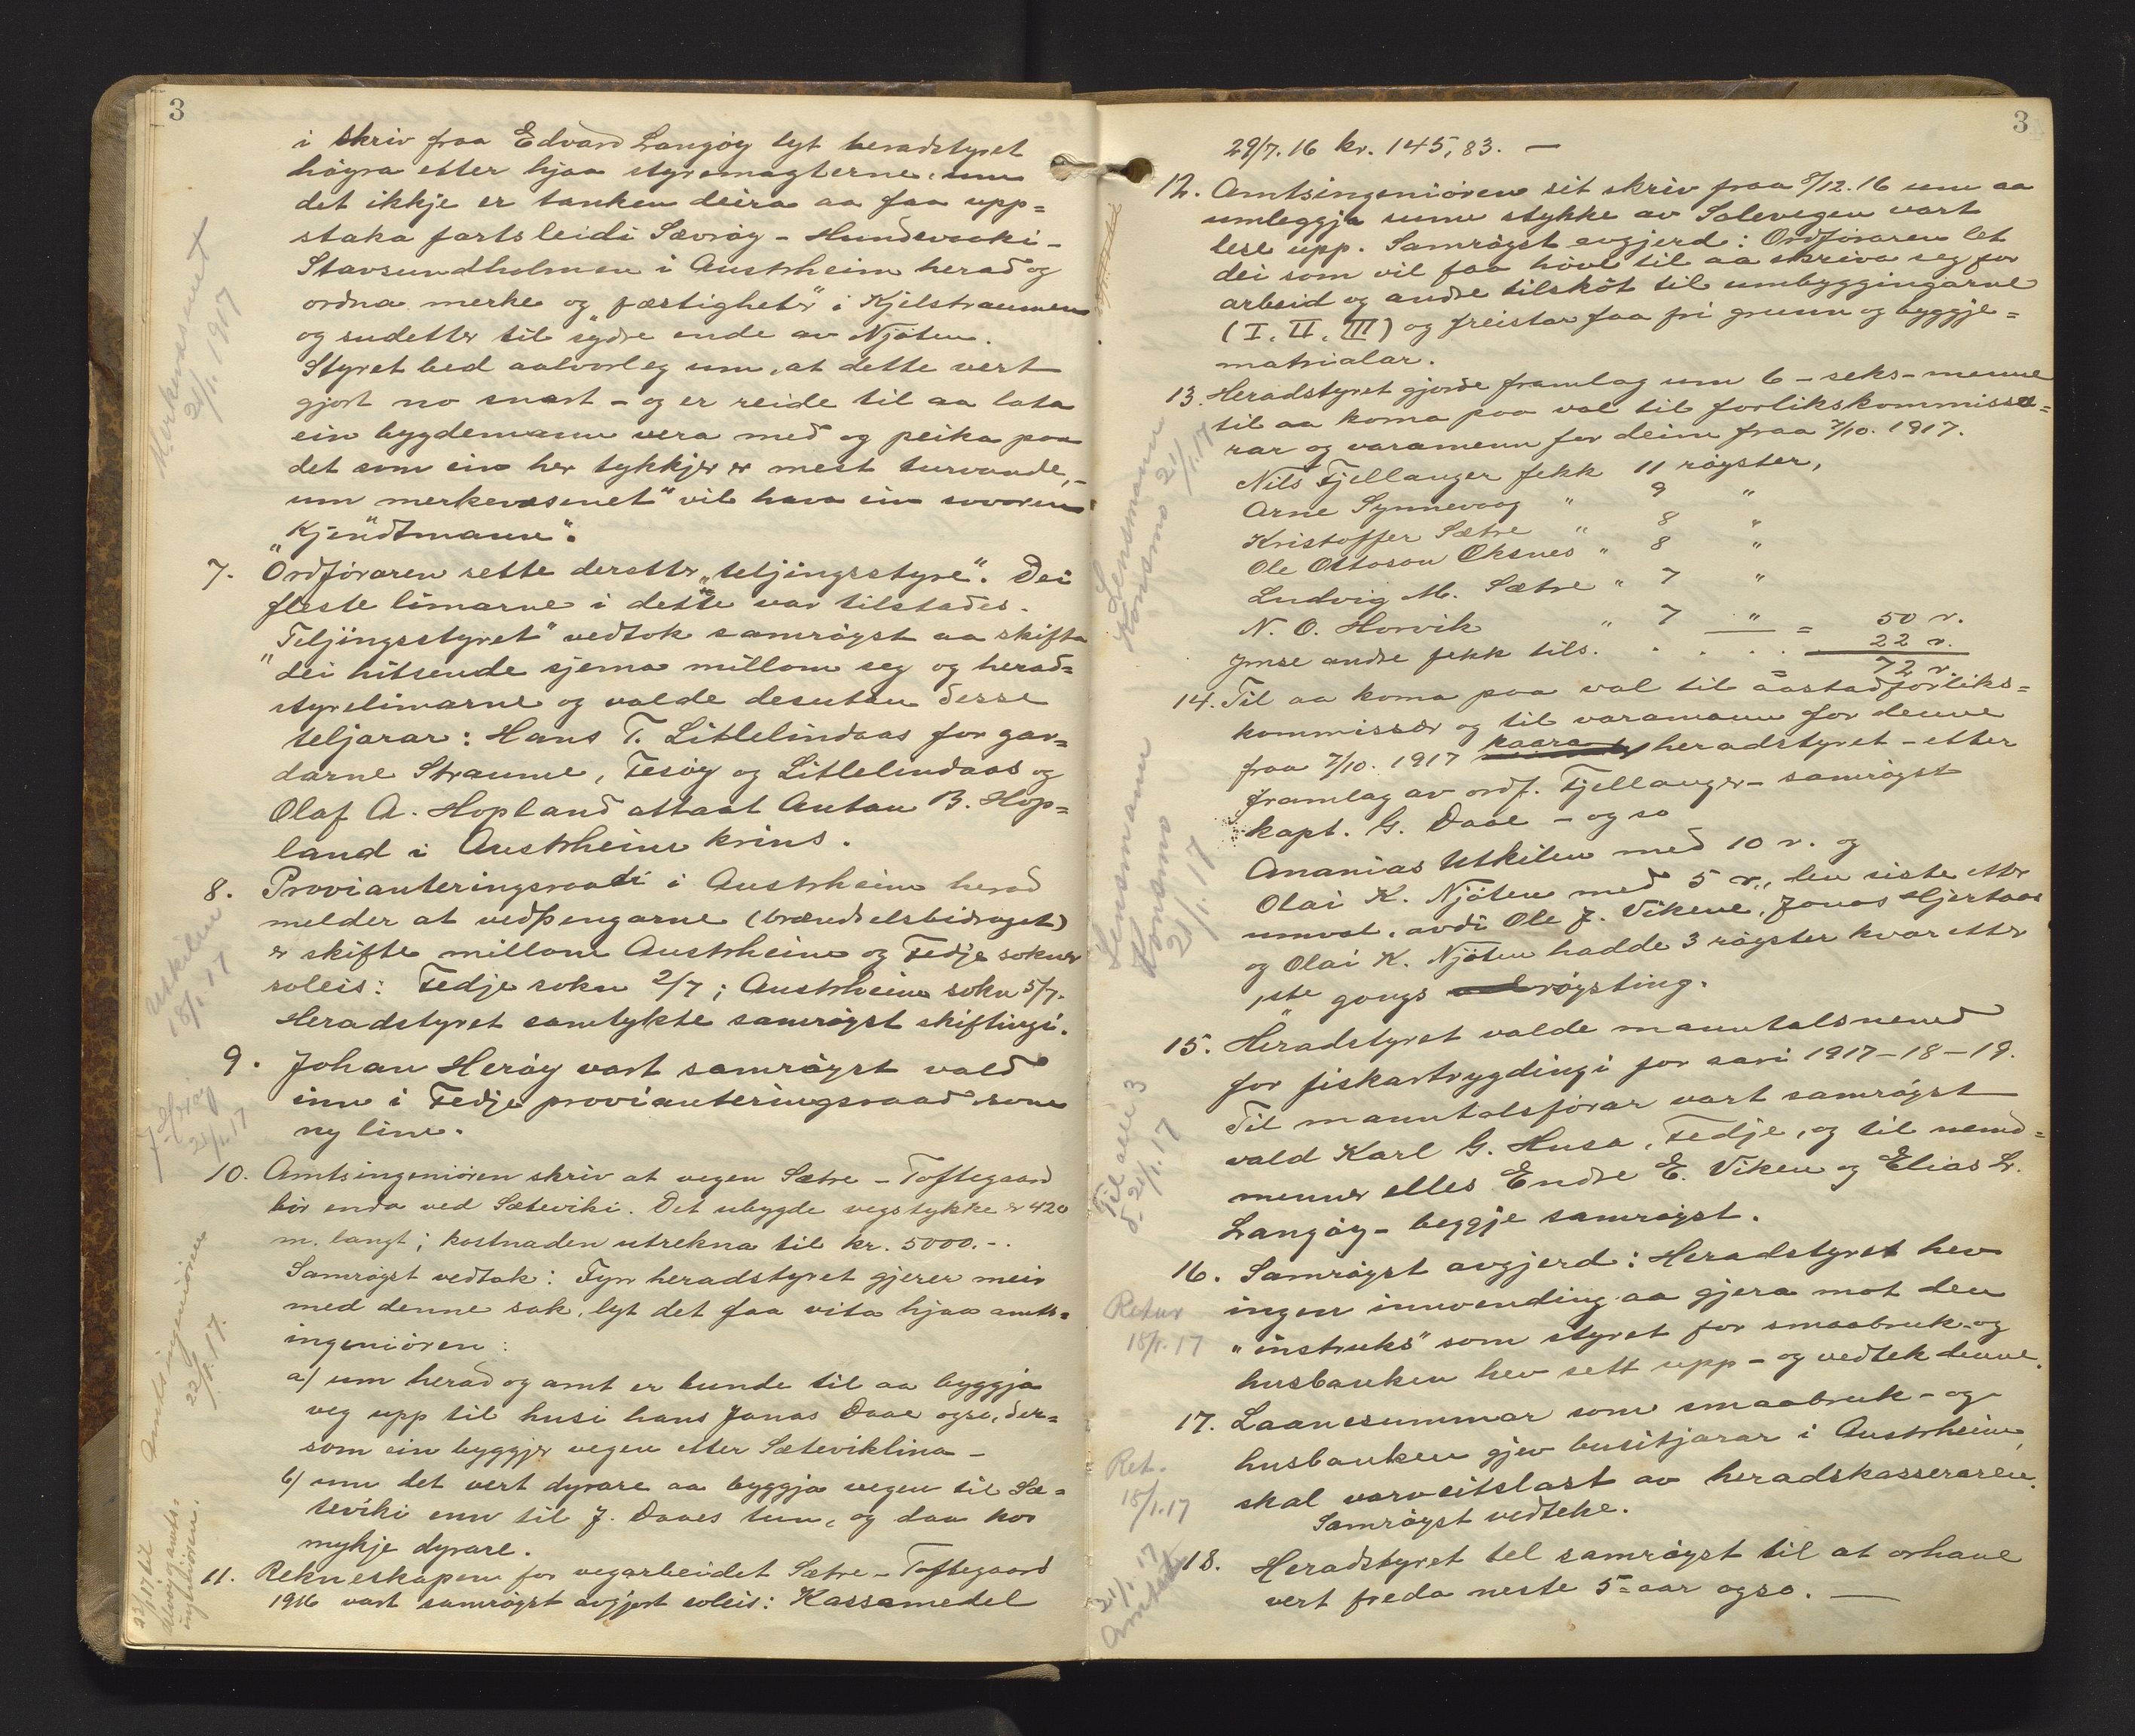 3
i skriv fraa Edvard Langøy lyt heradstyret
høyra etter hjaa styremagterne, um
det ikkje er tanken deira aa faa upp=
staka fartsleidi Sævrøy - Hundevaaki -
Stavsundholmen i Austrheim herad og
ordna merke og "fæstigheter" i Kjelstraumen
og sudetter til sydre ende av Njøten.
Styret bed aalvorleg um, at dette vert
gjort no snart - og er reide til aa lata
ein bygdemann vera med og peika paa
det som ein her tykkjer er mest turvande, -
um merkevæsenet" vil hava ein soværen
"Kjendtmann".
7. Ordføraren sette deretter "teljingsstyre". Dei
fleste limarne i dette var tilstades.
"Teljingsstyret" vedtok samrøyst aa skifta
dei hitsende sjema millom seg og herad=
styrelimarne og valde desutan desse
teljarar: Hans T. Litlelindaas for gar=
darne Straume, Fesøy og Litlelindaas og
Olaf A. Hopland attaat Antan B. Hop=
land i Austrheim krins.
8. Provianteringsraadi i Austrheim herad
melder at vedpengarne (brændselsbidraget)
er skifte millom Austrheim og Fedje sokner
soleis: Fedje sokn 2/7; Austrheim sokn 5/7.
Heradstyret samtykte samrøyst skiftingi.
9. Johan Herøy vart samrøyst vald
inn i Fedje provianteringsraad som
ny lim.
10. Amtsingeniøren skriv at vegen Sætre - Toftegaard
bør enda ved Sæteviki. Det ubygde vegstykke er 420
m. langt; kostnaden utrekna til kr. 5000.-.
Samrøyst vedtak: Fyrr heradstyret gjerer meir
med denne sak, lyt det faa vita hjaa amts=
ingeniøren:
a) um herad og amt er bunde til aa byggja
veg upp til husi hans Jonas Daae ogso, der=
som ein byggjer vegen etter Sæteviklina -
b) um det vert dyrare aa byggja vegen til Sæ=
teviki enn til J. Daaes tun, og daa kor
mykje dyrare.
11. Rekneskapen for vegarbeidet Sætre - Toftegaard
1916 vart samrøyst avgjort soleis: Kassamedel
Merkevæsenet
21/1. 1917
Utkilen
18/1. 17
J. Herøy
21/1. 17
Amtsingeniøren
22/1. 17.
23/1 17 til
amts=
ingeniøren.
3
29/7. 16 kr. 145,83. -
12. Amtsingeniøren sit skriv fraa 8/12. 16 um aa
umleggja sume stykke av Solevegen vart
lese upp. Samrøyst avgjerd: Ordføraren let
dei som vil faa høve til aa skriva seg for
arbeid og andre tilskot til umbyggingarne
(I, II, III) og freistar faa fri grunn og byggje=
matrialar.
13. Heradstyret gjorde framlag um 6 - seks - menne
til aa koma paa val til forlikskommissæ=
rar og varamenn for deim fraa 7/10. 1917.
Nils Fjellanger fekk 11 røyster,
Arne Synnevaag " 9 "
Kristoffer Sætre " 8 "
Ole Ottoson Oksnes " 8 "
Ludvig M. Sætre " 7 "
N. O. Horvik " 7 " = 50 r.
Ymse andre fekk tils. . . . . 22 r.
= 72 r.
14. Til aa koma paa val til aastadforliks=
kommissær og til varamann for denne
fraa 7/10. 1917 kaara heradstyret - etter
framlag av ordf. Fjellanger - samrøyst
kapt. G. Daae - og so
Ananias Utkilen med 10 r. og
Olai K. Njøten med 5 r., den siste etter
umvot, avdi Ole J. Vikene, Jonas Hjertaas
og Olai K. Njøten hadde 3 røyster kvar etter
1ste gongs røysting.
15. Heradstyret valde manntalsnemd
for fiskartrygdingi for aari 1917-18-19.
Til manntalsførar vart samrøyst
vald Karl G. Husa, Fedje, og til nemd=
menner elles Endre E. Viken og Elias L.
Langøy - beggje samrøyst.
16. Samrøyst avgjerd: Heradstyret hev
ingen innvending aa gjera mot den
"instruks" som styret for smaabruk- og
husbanken hev sett upp - og vedtek denne.
17. Laanesummar som smaabruk- og
husbanken gjev busitjarar i Austrheim,
skal varveitslast av heradskasseraren.
Samrøyst vedteke.
18. Heradstyret tel samrøyst til at orhane
vert freda neste 5-aar ogso. -
Lensmann
Konsmo 21/1. 17
Lensmann
Konsmo
21/1. 17
Til alle 3
d. 21/1. 17
Retur
18/1. 17
Ret.
18/1. 17
21/1. 17
Amtet